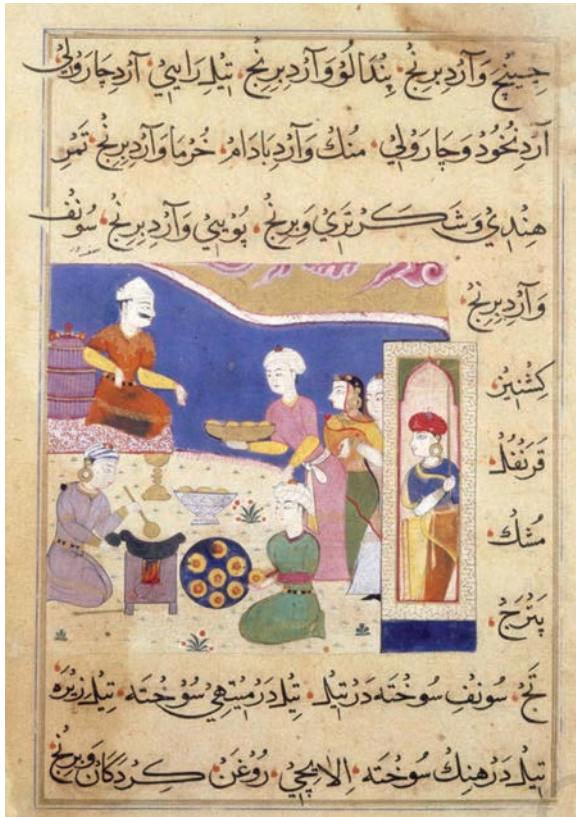 جينچ وَآرْدِ بِرِنْج پِنْدَالُوْ وَآرْدِ بِرِنْج تِيْلِ رَايِيْ آرْدِ جَارْوَلِيْ
آرْدِ نُخُوْد وَجَارْوَلِيْ مُنْك وَآرْدِ بَادَامْ خُرْمَا وَآرْدِ بِرِنْج تَمْرِ
هِنْدِيْ وَشَكَرْتَرِيْ وَبِرِنْج پُوْيِيْ وَآرْدِ بِرِنْج سُوْنْف
وَآرْدِ بِرِنْج
كِشْنِيْز
قَرَنْفُلْ
مُشْك
پَتْرَجْ
تَجْ سُوْنْفِ سُوْخْتَه دَرْ تِيْلْ تِيْلْ دَرْ مِيْتْهِيْ سُوْخْتَه تِيْلِ زِيْرَه
تِيْلْ دَرْ هِنْك سُوْخْتَه اِلَايْچِيْ رُوْغَنْ كِرْدَكَانْ وَبِرِنْج